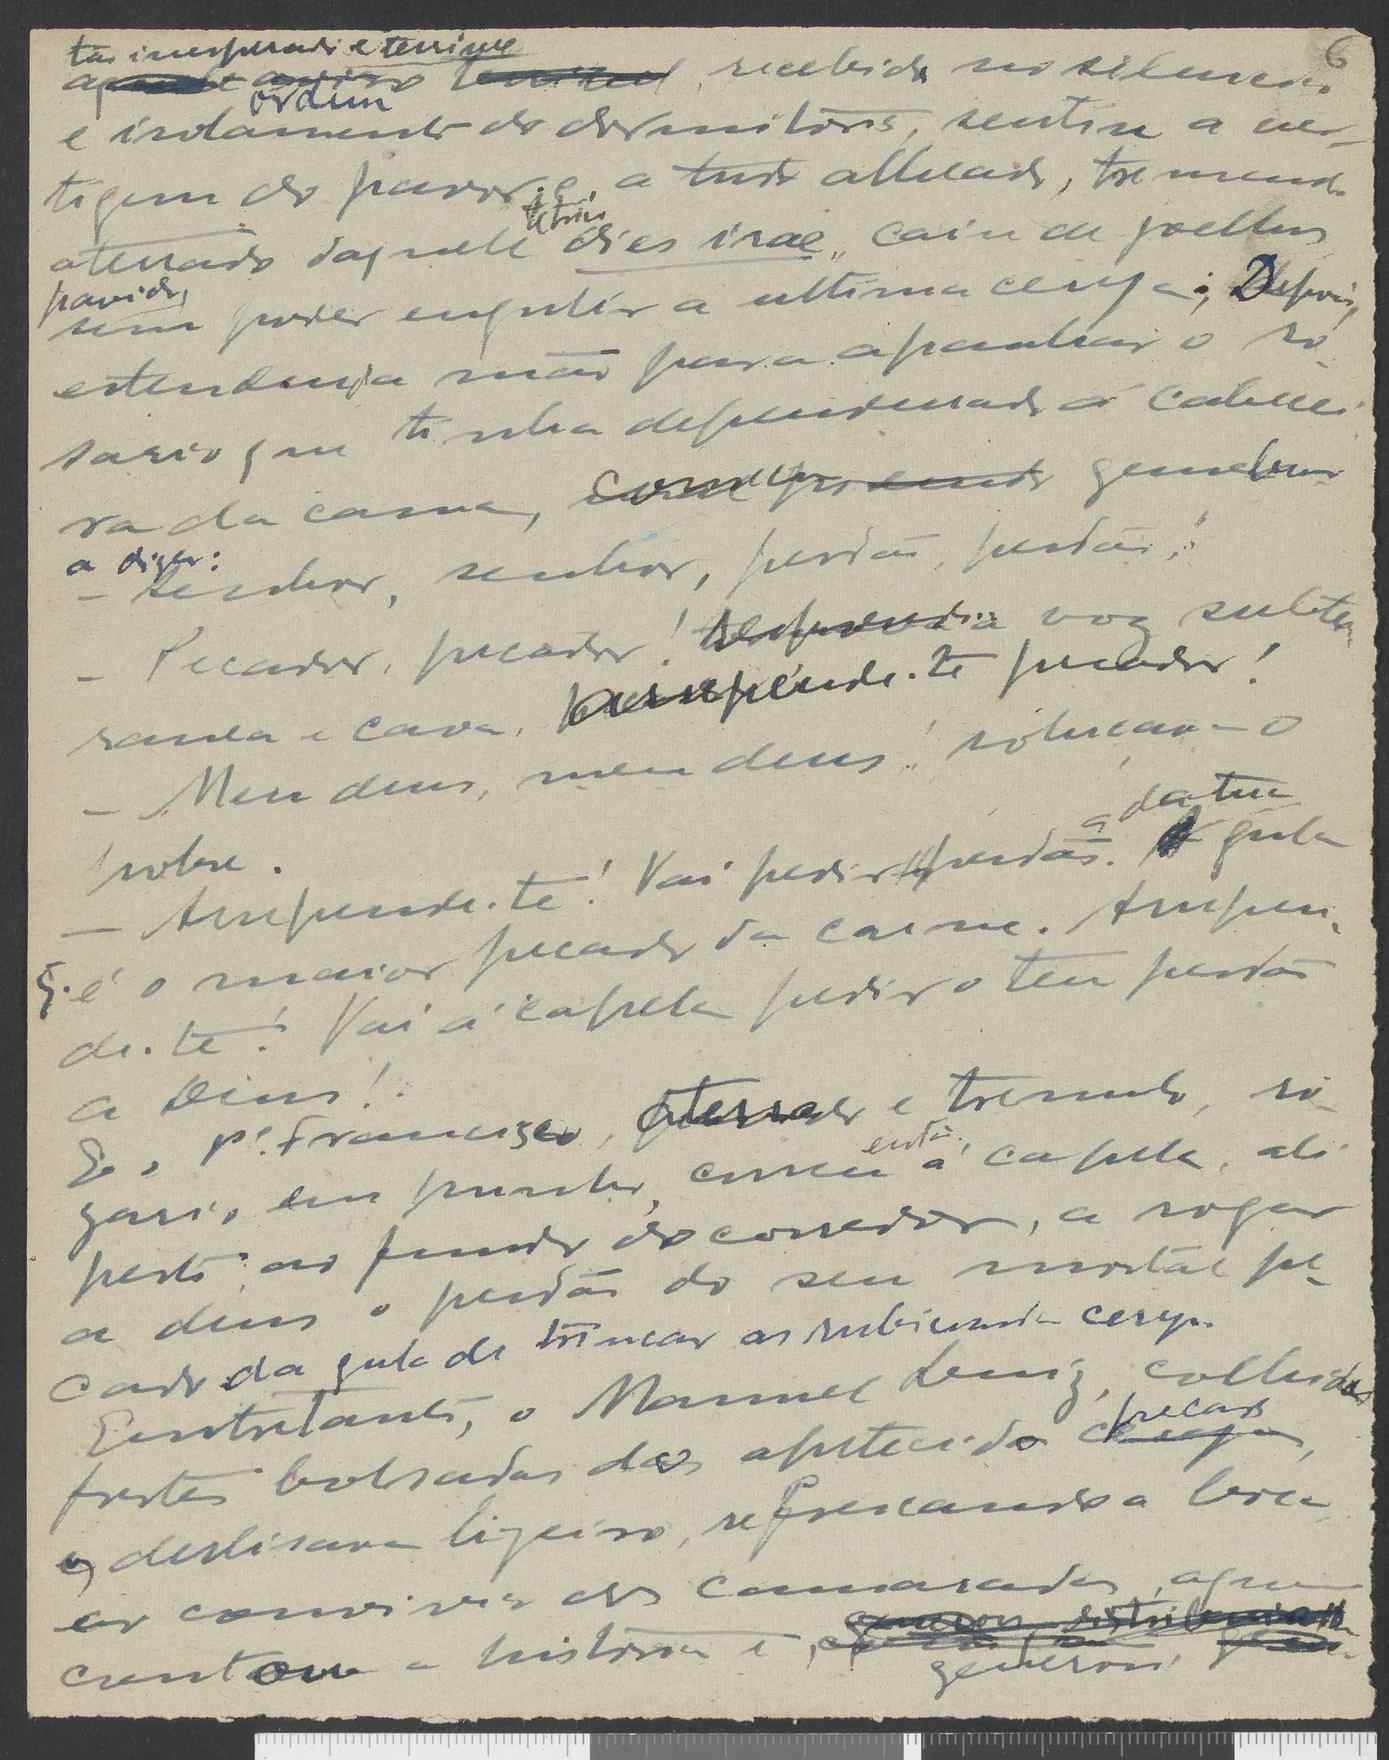 6
tão inesperada e terrivel
recebida no silencio
ordem
e isolamento do dormitorio, sentiu a ver-
tigem do pavor; e, a tudo alheado, tremendo
tetrico
aterrado daquele dies irae, caiu de joelhos
pavido,
sem poder engulir a ultima cereja; Depois,
estendeu a mão para apanhar o ro-
sario que tinha dependurado á cabecei-
ra da cama,
a dizer:
- Senhor, senhor, perdão, perdão!
- Pecador, pecador! respondia a voz subter-
ranea e cava. Arrepende-te pecador!
- Meu deus, meu deus! soluçava o
pobre.
a da tua
- Arrepende-te! Vai pedir perdão. gula
q. é o maior pecado da carne. Arrepen-
de-te! Vai á capela pedir o teu perdão
a Deus!
E o Pe. Francisco, aterrado e tremulo, ro-
então
sario em punho, correu á capela, ali
perto ao fundo do corredor, a rogar
a deus o perdão do seu mortal pe-
cado da gula de trincar as rubicundas cerejas.
Entretanto, o Manuel Luiz, colhidas
fartas bolsadas do apetecido pecado
e, deslisava ligeiro, refrescando a boca
ao convivio dos camaradas, a quem
contou a historia e,
generoso,